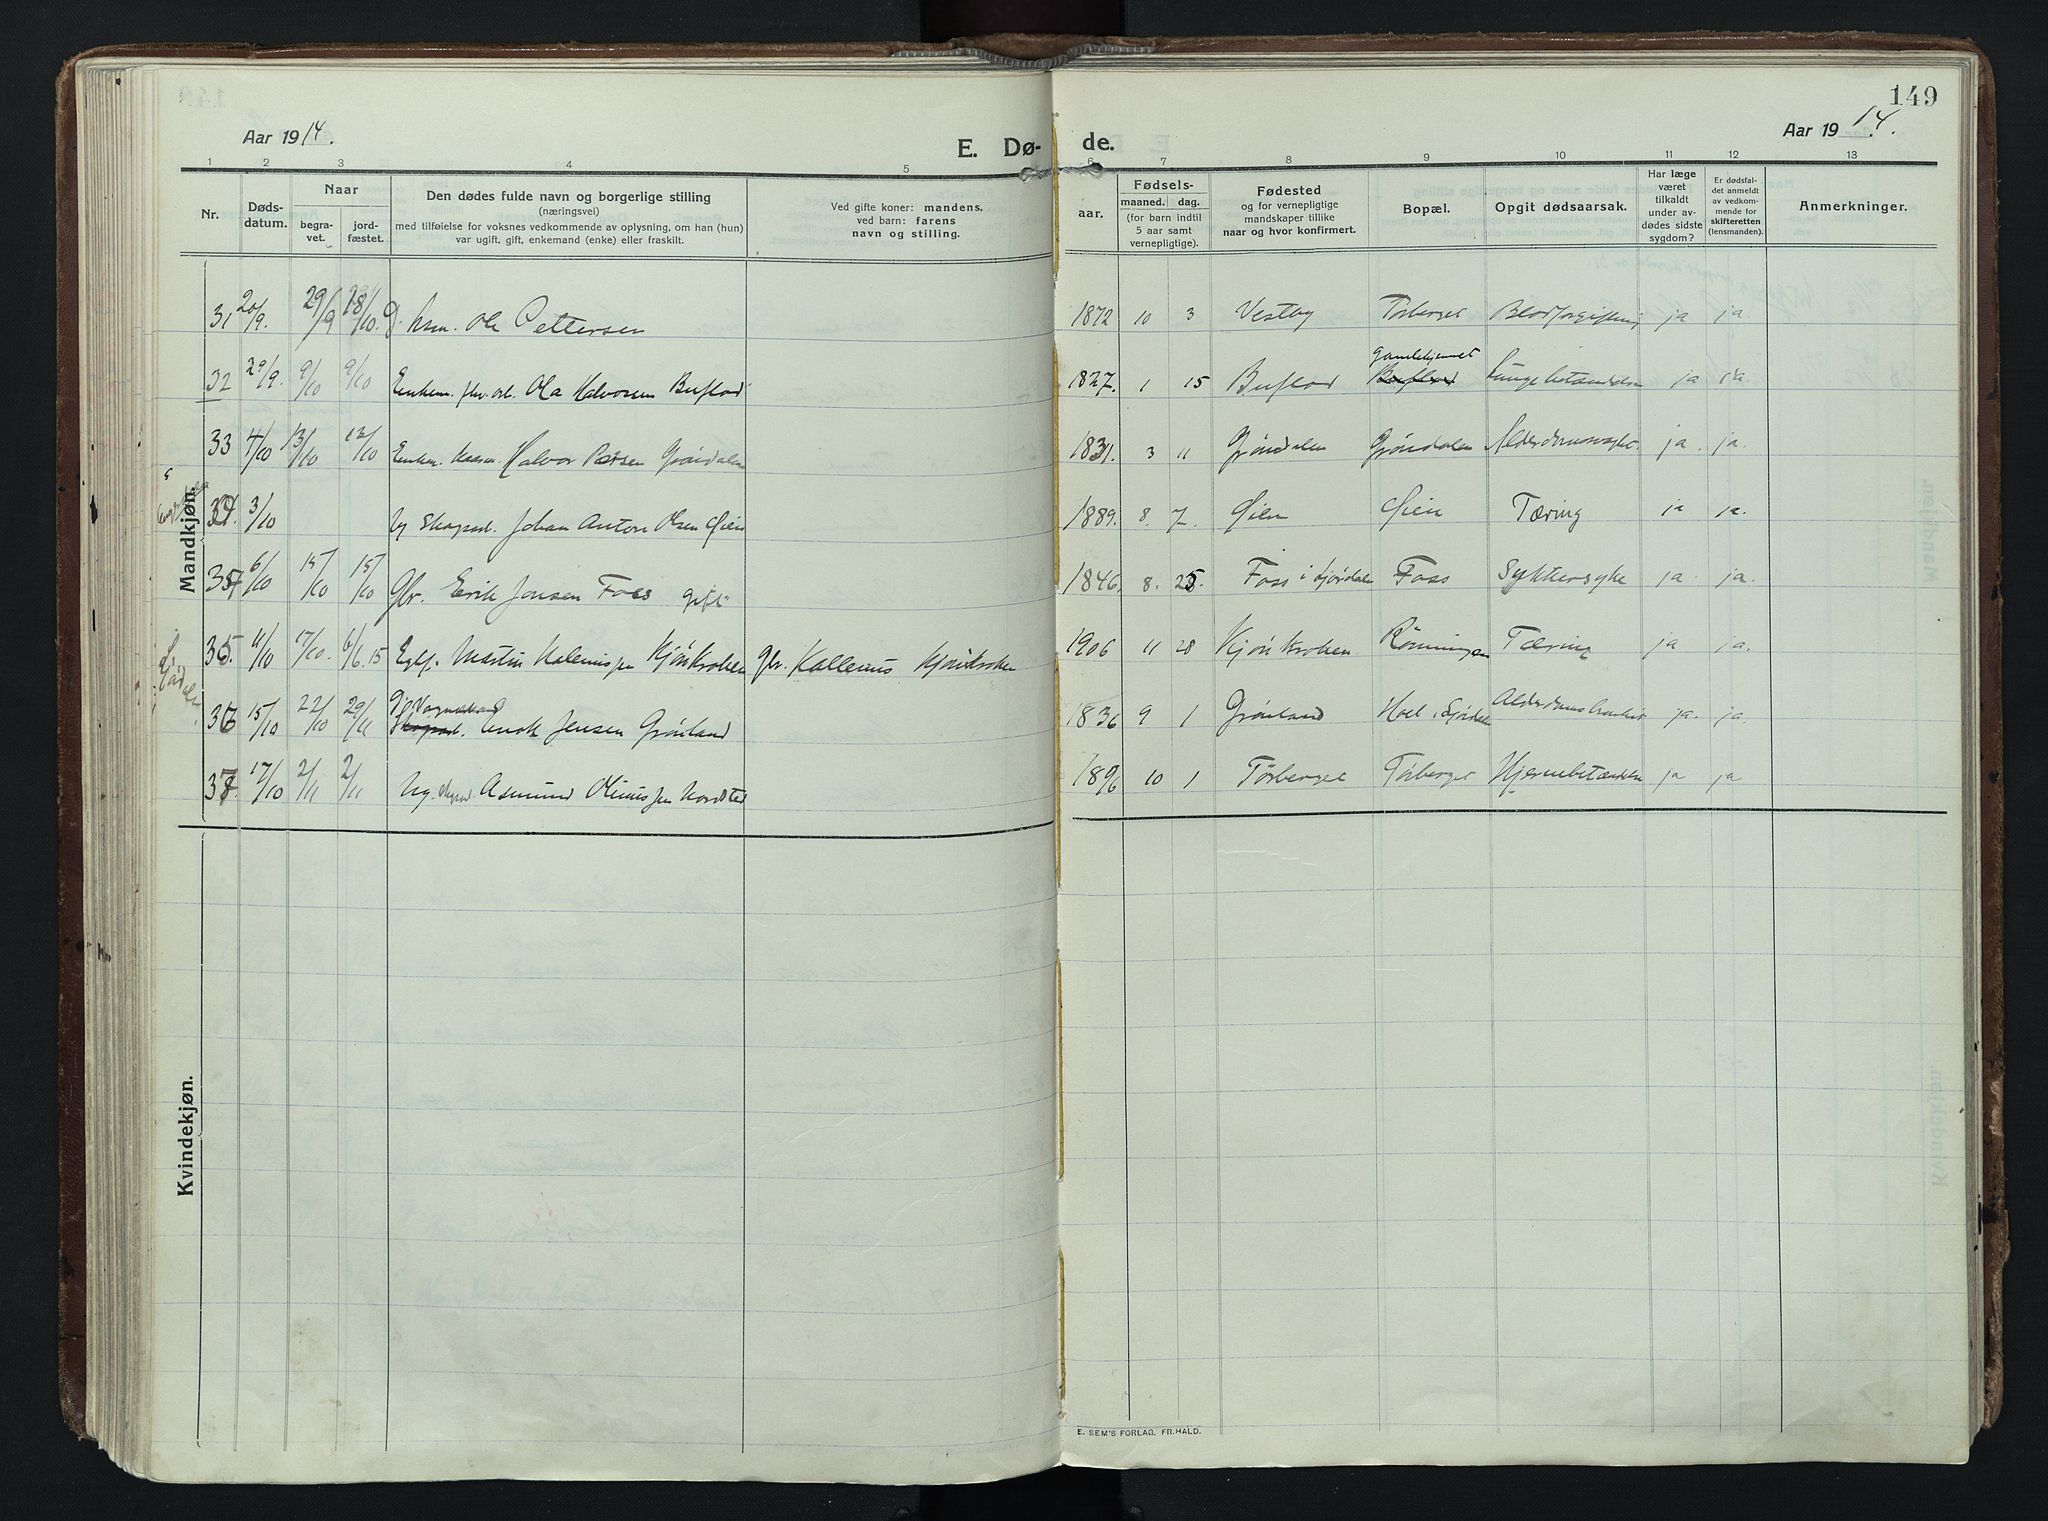 149
Aar 1914.
E. Dø-
de.
Aar 1914.
1 2 3 4 5 6 7 8 9 10 11 12 13
Nr.
Døds-
datum.
Naar
begra-
vet.
jord-
fæstet.
Den dødes fulde navn og borgerlige stilling
(næringsvei)
med tilføielse for voksnes vedkommende av oplysning, om han (hun)
var ugift, gift, enkemand (enke) eller fraskilt.
Ved gifte koner: mandens,
ved barn: farens
navn og stilling.
aar.
Fødsels-
maaned. dag.
(for barn indtil
5 aar samt
vernepligtige).
Fødested
og for vernepligtige
mandskaper tillike
naar og hvor konfirmert.
Bopæl.
Opgit dødsaarsak.
Har læge
været
tilkaldt
under av-
dødes sidste
sygdom?
Er dødsfal-
det anmeldt
av vedkom-
mende for
skifteretten
(lensmanden).
Anmerkninger.
Mandkjøn.
31 20/9. 29/9 18/10. g. hsm. Ole Pettersen 1872 10 3 Vestby Törberget Blodforgiftning ja ja.
32 29/9. 9/10 9/10 Enkem. Ola Halvorsen Buflod 1827. 1 15 Buflod Buflod Lungebetændelse ja ja.
33 4/10 13/10 12/10 Enkem. Halvor Grøndalen 1831. 3 11 Grøndalen Grøndalen Alderdomssvakh. ja. ja.
34. 3/10 ug Skogsarb. Johan Anton Olsen Øien 1889. 8. 7. Øien Øien Tæring ja ja.
35 6/10 15/10 15/10 Gbr. Erik Jensen Foss gift 1846. 8. 25. Foss i Ljørdalen Foss Sukkersyke ja. ja.
35. 11/10 17/10. 6/6.15 Martin Kjönkroken gbr. Kallenius Kjönkroken 1906 11 28 Kjönkroken Rönningen Tæring ja ja.
36 15/10 22/10 29/11 Enok Jensen Grönland 1836 9 1 Grönland Hoel i Ljørdalen ja. ja.
37. 17/10 2/11 2/11 Ug. Asmund Olinussen Nordsted 1896 10 1 Törberget Törberget Hjernebetændelse ja ja
Kvindekjøn.
E. SEM'S FORLAG, FR.HALD.